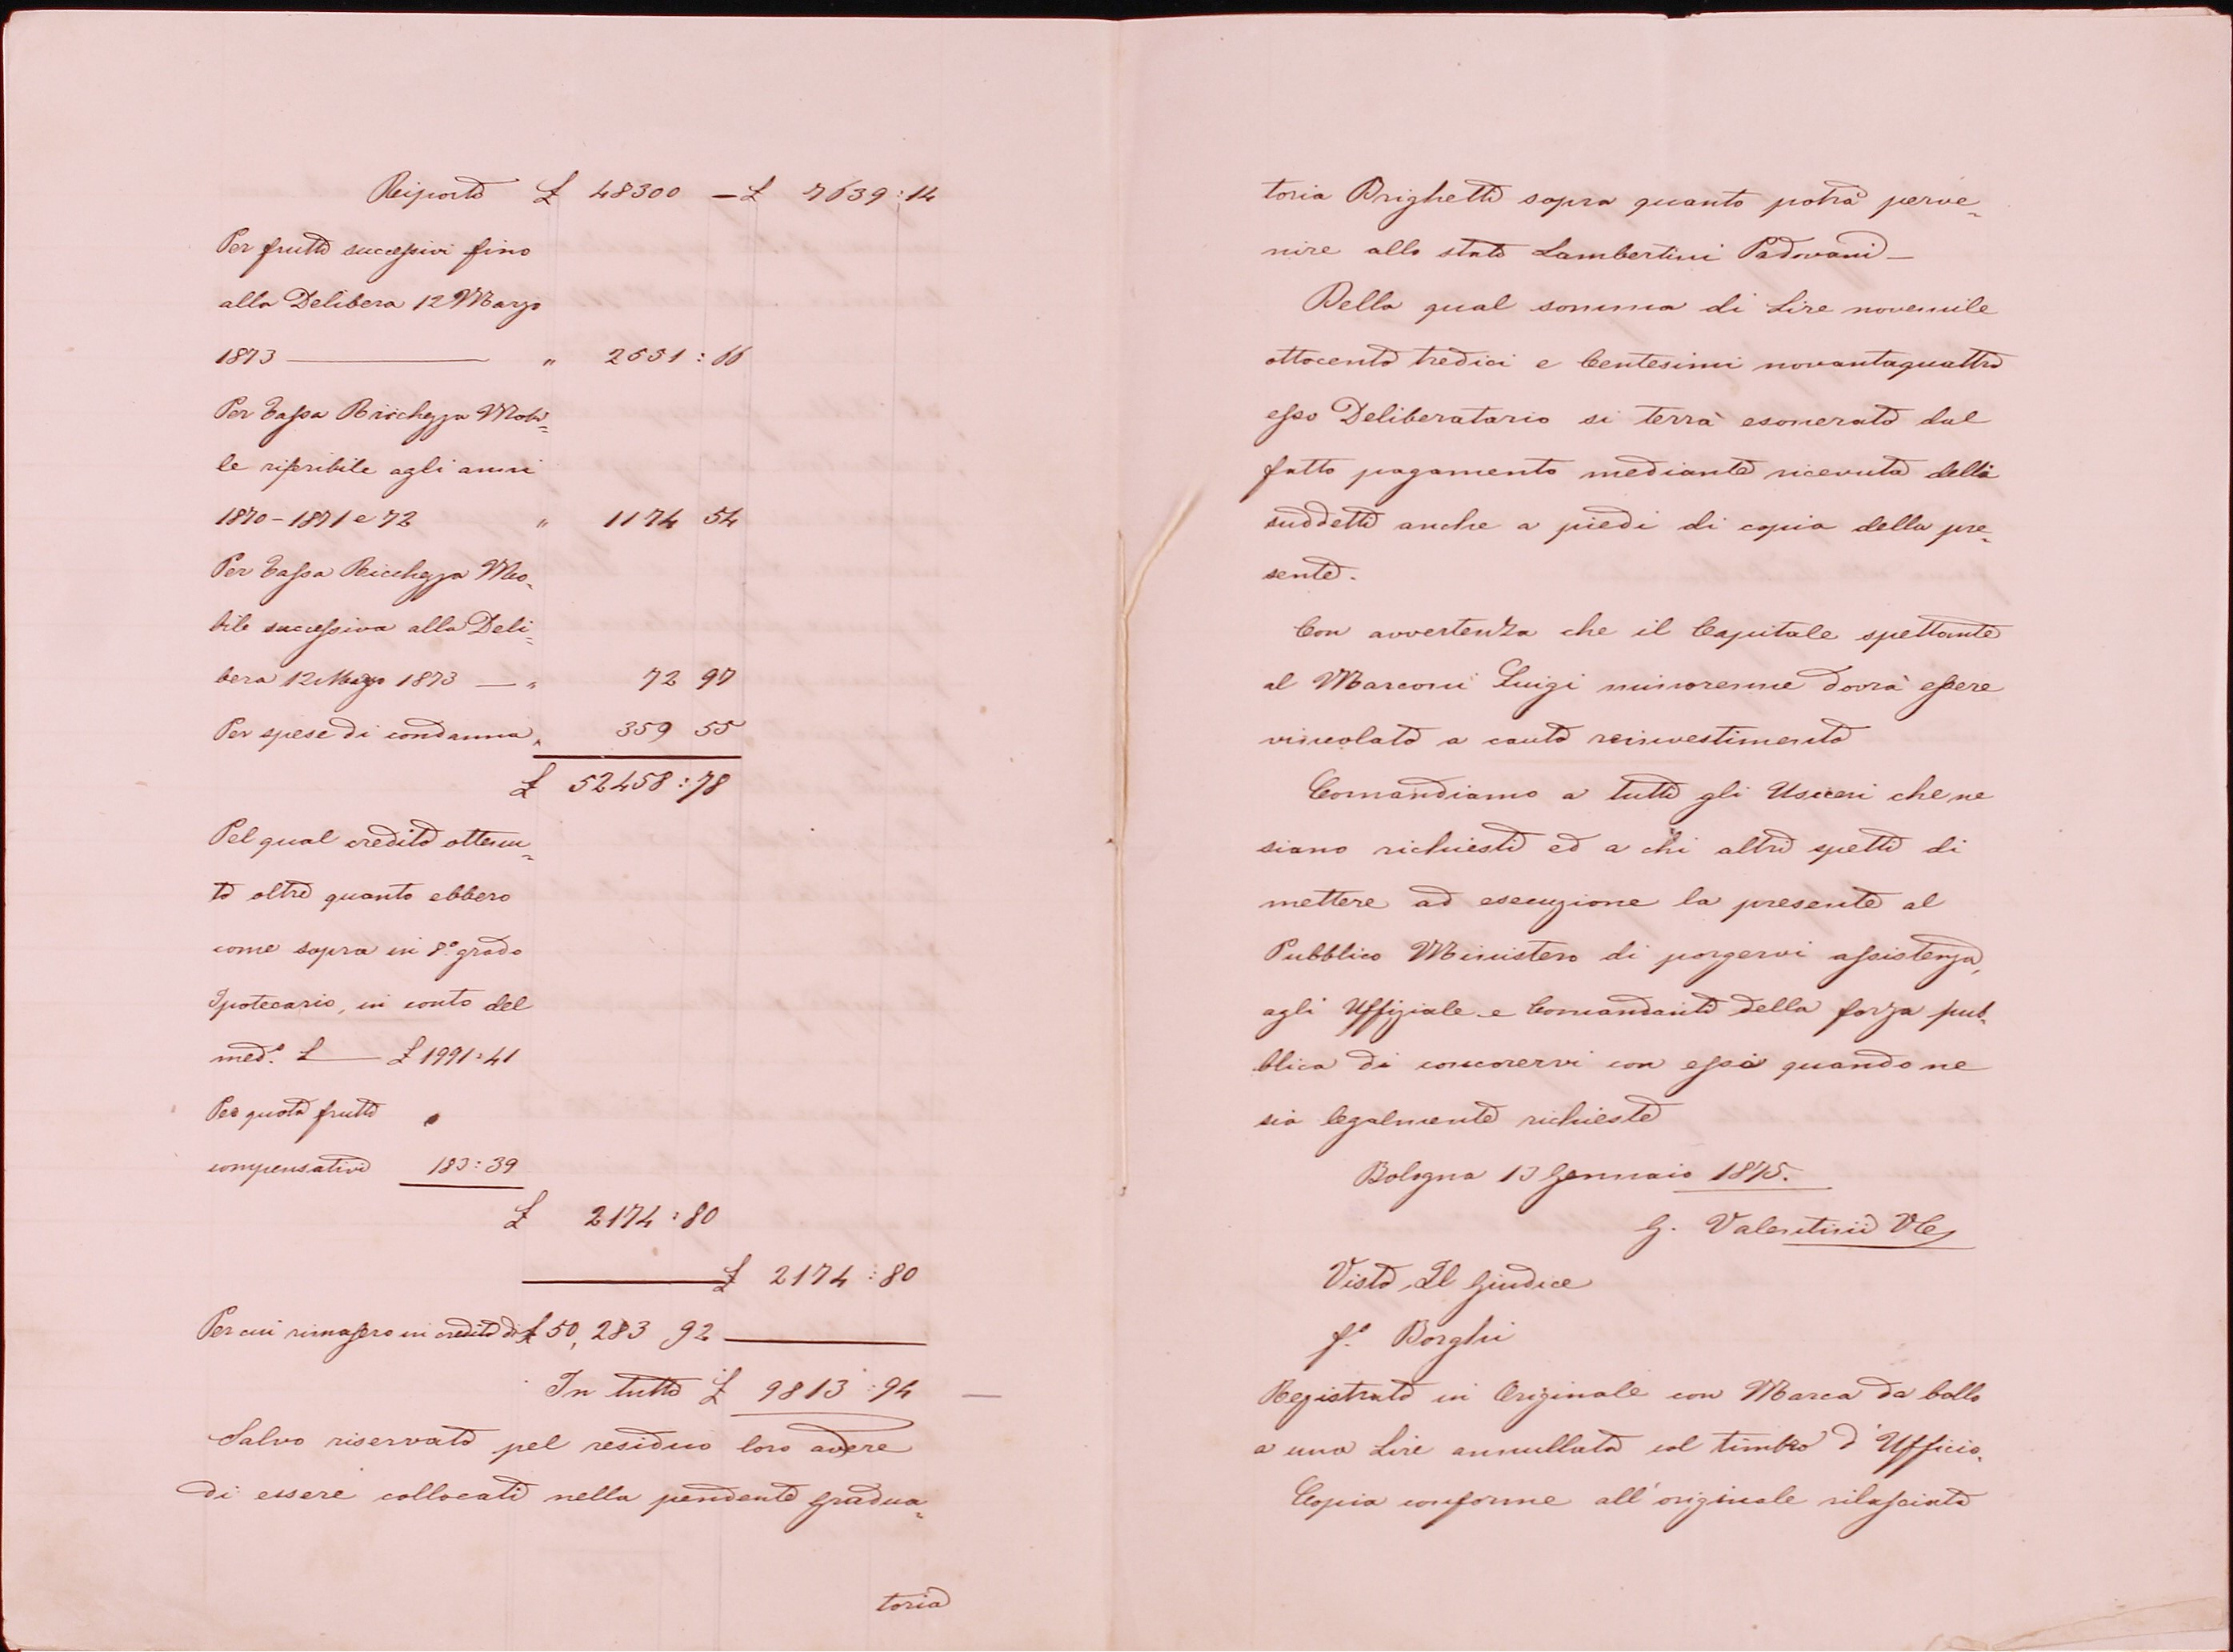 Riporto £ 48300 — £ 7639:14
Per frutti successivi fino
alla Delibera 12 Marzo
1873 — " 2551:66
Per Tassa Ricchezza Mobi=
le riferibile agli anni
1870-1871 e 72 " 1174 54
Per Tassa Ricchezza Mo=
bile successiva alla Deli=
bera 12 Marzo 1873 — " 72 97
Per spese di condanna " 359 55
£ 52458:72
Pel qual credito ottenu=
to oltre quanto ebbero
come sopra in 8.° grado
Ipotecario, in conto del
med.° £ — £ 1991:41
Per quota frutti
compensativi 183:39
£ 2174:80
£ 2174:80
Per cui rimasero in credito di £ 50,283 92
In tutto £ 9813:94 —
Salvo riservato pel residuo loro avere
di essere collocati nella pendente Gradua=
toria
toria Brighetti sopra quanto potrà perve=
nire allo stato Lambertini Padovani —
Della qual somma di Lire novemile
ottocento tredici e Centesimi novantaquattro
esso Deliberatario si terrà esonerato dal
fatto pagamento mediante ricevuta delli
suddetti anche a piedi di copia della pre=
sente.
Con avvertenza che il Capitale spettante
al Marconi Luigi minorenne dovrà essere
vincolato a cauto reinvestimento
Comandiamo a tutti gli Usceri che ne
siano richiesti ed a chi altri spetti di
mettere ad esecuzione la presente al
Pubblico Ministero di porgervi assistenza,
agli Uffiziale e Comandanti della forza pub=
blica di concorervi con essa quando ne
sia legalmente richieste
Bologna 13 Gennaio 1875.
G. Valentinii VC
Visto Il Giudice
f.° Borghi
Registrato in Originale con Marca da bollo
a una Lire annullata col timbro d'Ufficio.
Copia conforme all'originale rilasciata